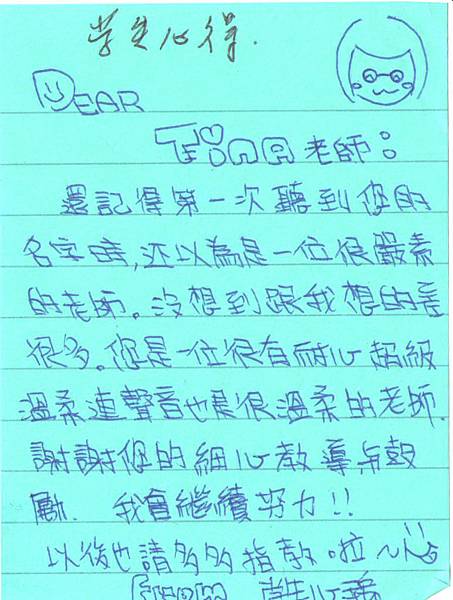 学生心得.
DEAR
TinA 老師:
還記得第一次聽到您的
名字時,还以為是一位很嚴素
的老師。沒想到跟我想的差
很多。您是一位很有耐心超級
溫柔連聲音也是很溫柔的老師.
謝謝您的細心教導与鼓
勵. 我會繼續努力!!
以後也請多多指教啦~
From